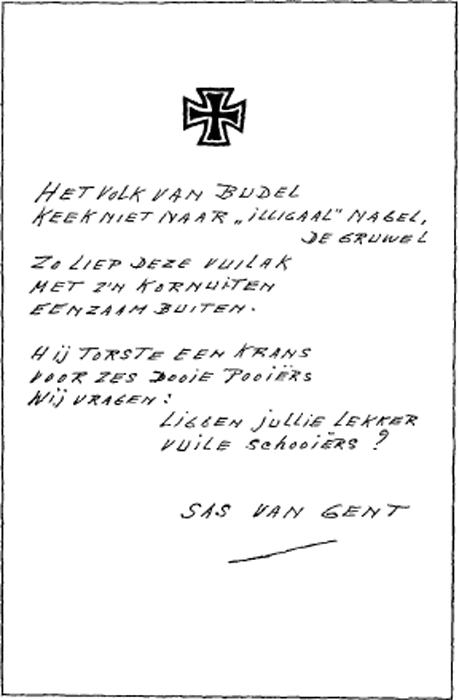 HET VOLK VAN BUDEL
KEEK NIET NAAR „ILLIGAAL" NAGEL,
DE GRUWEL
ZO LIEP DEZE VUILAK
MET Z'N KORNUITEN
EENZAAM BUITEN.
HIJ TORSTE EEN KRANS
VOOR ZES DOOIE POOIËRS
WIJ VRAGEN:
LIGGEN JULLIE LEKKER
VUILE SCHOOIËRS?
SAS VAN GENT